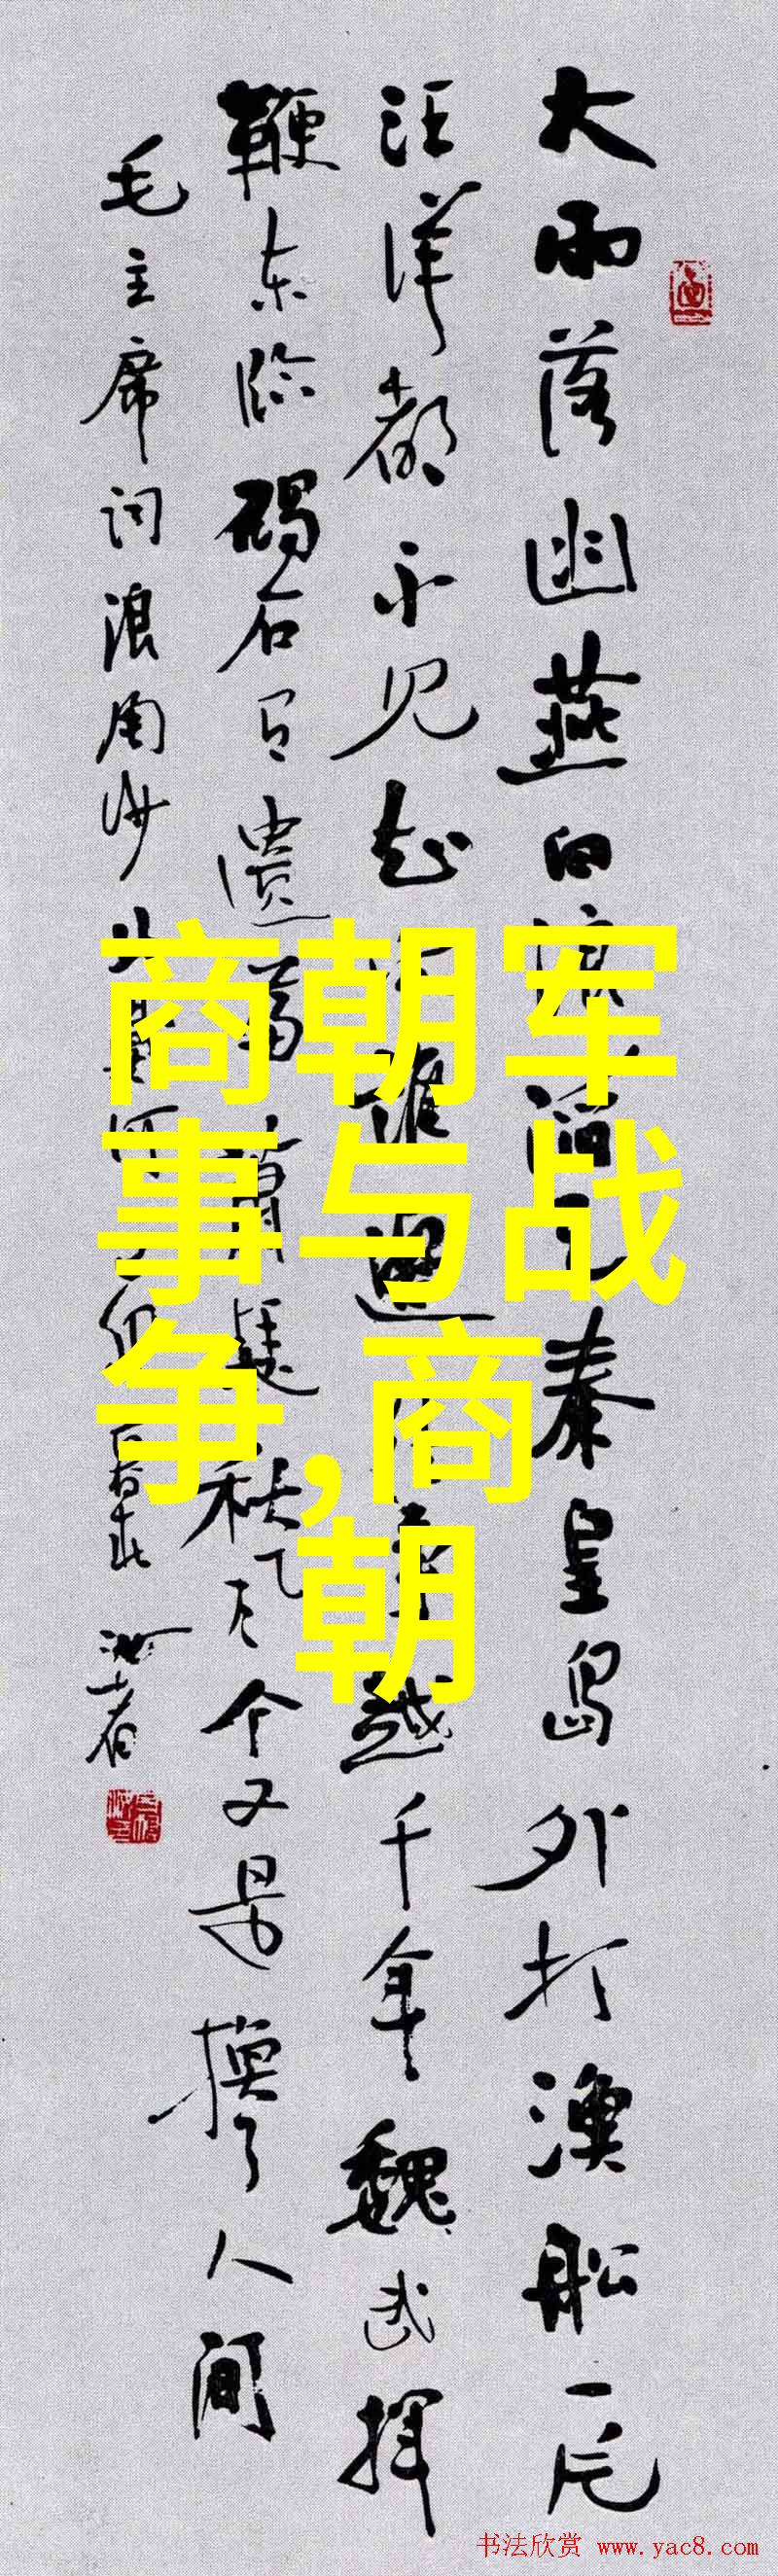 大雨落幽燕白浪滔天秦皇岛外打渔船一片
汪洋都不见知向谁边往事越千年魏武挥
鞭东临碣石有遗篇萧瑟秋风今又是换了人間
毛主席词浪淘沙北戴河
商朝军
事与战
争,商
朝
书法欣赏 www.yac8.com